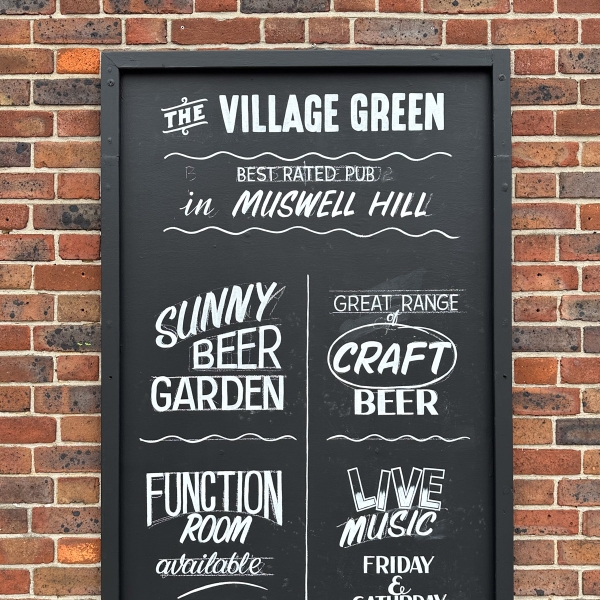 THE VILLAGE GREEN
BEST RATED PUB
in MUSWELL HILL
SUNNY
BEER
GARDEN
GREAT RANGE
of
CRAFT
BEER
FUNCTION
ROOM
available
LIVE
MUSIC
FRIDAY
&
SATURDAY